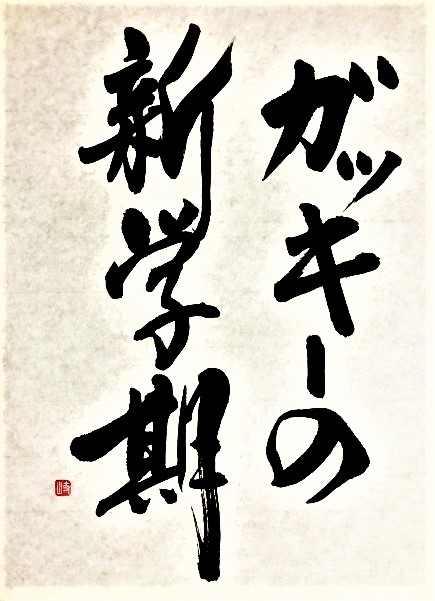 ガッキーの
新学期